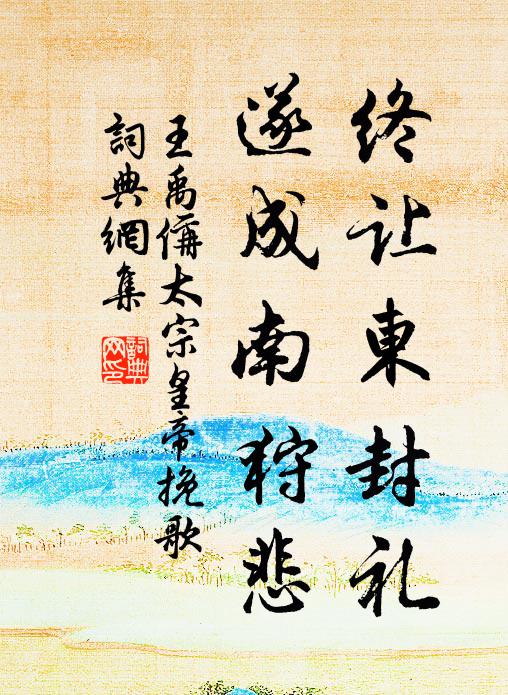 终让東封礼
遂成南狩悲
王禹偁太宗皇帝挽歌
詞典網集
詞典
网印